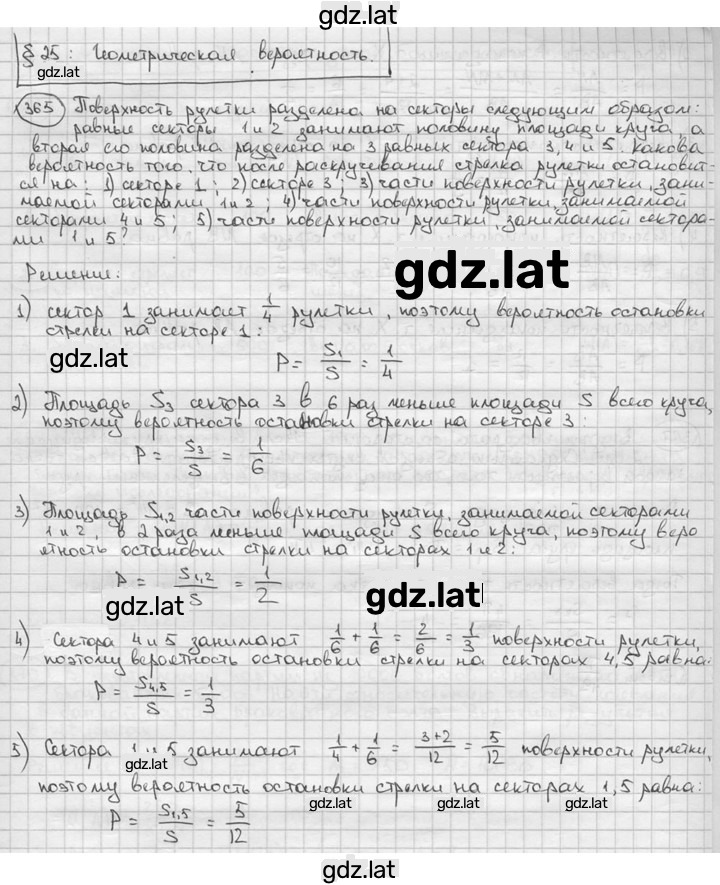 gdz.lat
§ 25: Геометрическая вероятность.
gdz.lat
365 Поверхность рулетки разделена на секторы следующим образом:
равные секторы 1 и 2 занимают половину площади круга, а
вторая его половина разделена на 3 равных сектора 3, 4 и 5. Какова
вероятность того, что после раскручивания стрелка рулетки остановит-
ся на: 1) секторе 1; 2) секторе 3; 3) части поверхности рулетки, зани-
маемой секторами 1 и 2; 4) части поверхности рулетки, занимаемой
секторами 4 и 5; 5) части поверхности рулетки, занимаемой сектора-
ми 1 и 5?
Решение:
gdz.lat
1) сектор 1 занимает 1/4 рулетки, поэтому вероятность остановки
стрелки на секторе 1:
gdz.lat
P = S₁/S = 1/4
2) Площадь S₃ сектора 3 в 6 раз меньше площади S всего круга,
поэтому вероятность остановки стрелки на секторе 3:
P = S₃/S = 1/6
3) Площадь S₁,₂ части поверхности рулетки, занимаемой секторами
1 и 2, в 2 раза меньше площади S всего круга, поэтому веро
ятность остановки стрелки на секторах 1 и 2:
P = S₁,₂/S = 1/2
gdz.lat
gdz.lat
4) Сектора 4 и 5 занимают 1/6 + 1/6 = 2/6 = 1/3 поверхности рулетки,
поэтому вероятность остановки стрелки на секторах 4,5 равна:
P = S₄,₅/S = 1/3
5) Сектора 1 и 5 занимают 1/4 + 1/6 = 3+2/12 = 5/12 поверхности рулетки,
gdz.lat
поэтому вероятность остановки стрелки на секторах 1,5 равна:
gdz.lat
gdz.lat
P = S₁,₅/S = 5/12
gdz.lat